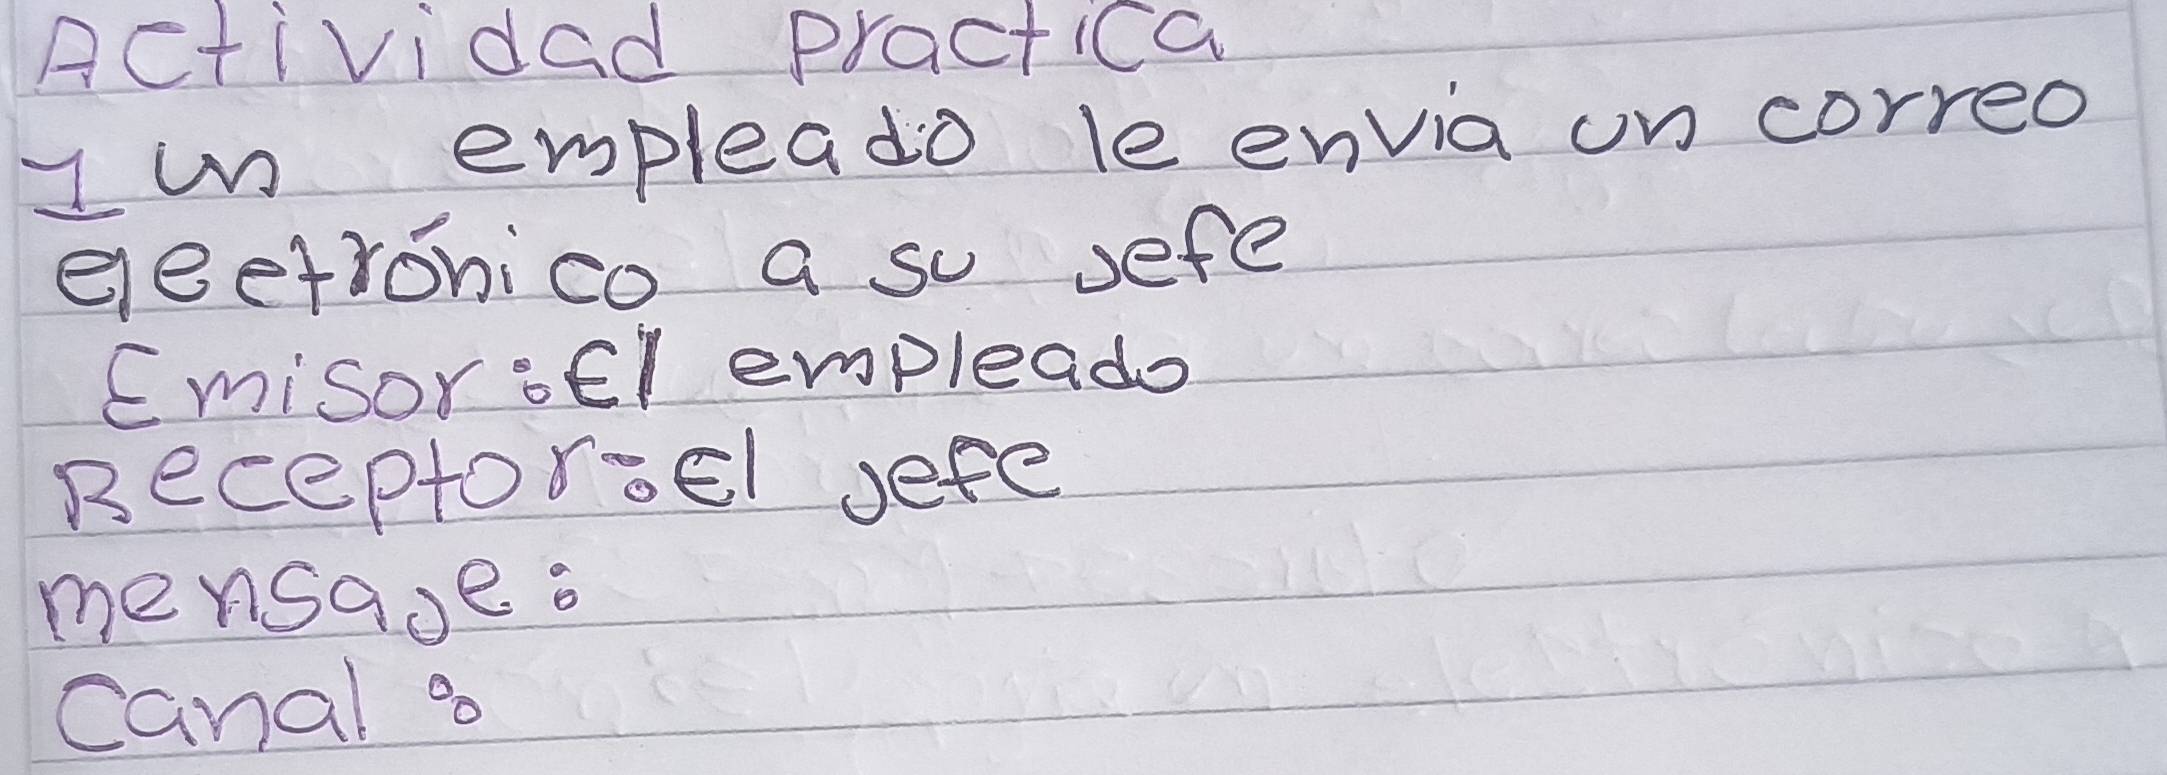 Actividad practica
1 un empleado le envía un correo
electrónico a su jefe
Emisor: El empleado
Receptor: El jefe
mensaje:
Canal: